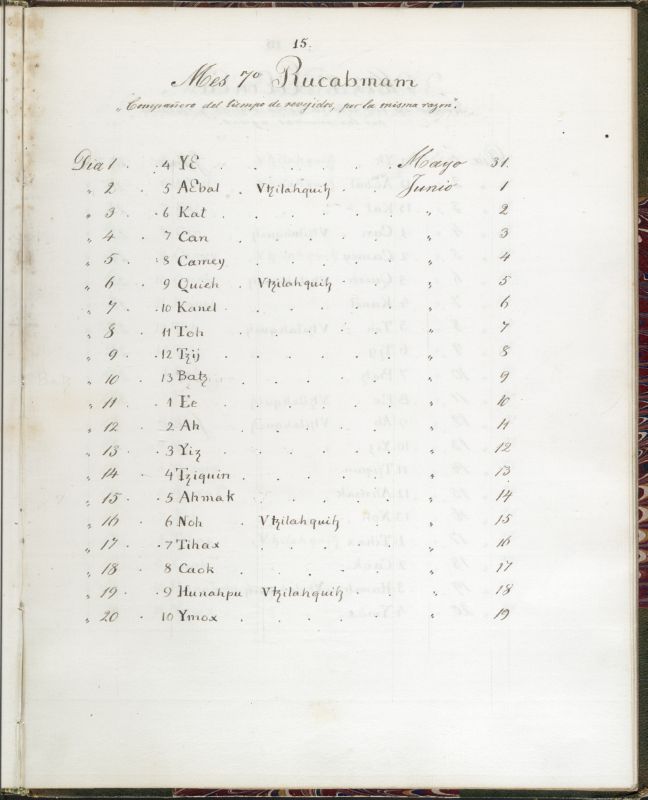 15.
Mes 7º Rucabmam
"Compañero del tiempo de revejidos, por la misma razon".
Dia 1 . . 4 YE . . . . . . Mayo 31.
" 2 . . 5 AEbal . Vtzilahquih . . Junio 1
" 3 . . 6 Kat . . . . . . " 2
" 4 . . 7 Can . . . . . . " 3
" 5 . . 8 Camey . . . . . . " 4
" 6 . . 9 Quieh . Vtzilahquih . . " 5
" 7 . . 10 Kanel . . . . . . " 6
" 8 . . 11 Toh . . . . . . " 7
" 9 . . 12 Tzij . . . . . . " 8
" 10 . . 13 Batz . . . . . . " 9
" 11 . . 1 Ee . . . . . . " 10
" 12 . . 2 Ah . . . . . . " 11
" 13 . . 3 Yiz . . . . . . " 12
" 14 . . 4 Tziquin . . . . . " 13
" 15 . . 5 Ahmak . . . . . " 14
" 16 . . 6 Noh . Vtzilahquih . . " 15
" 17 . . 7 Tihax . . . . . " 16
" 18 . . 8 Caok . . . . . " 17
" 19 . . 9 Hunahpu Vtzilahquih . . " 18
" 20 . . 10 Ymox . . . . . " 19